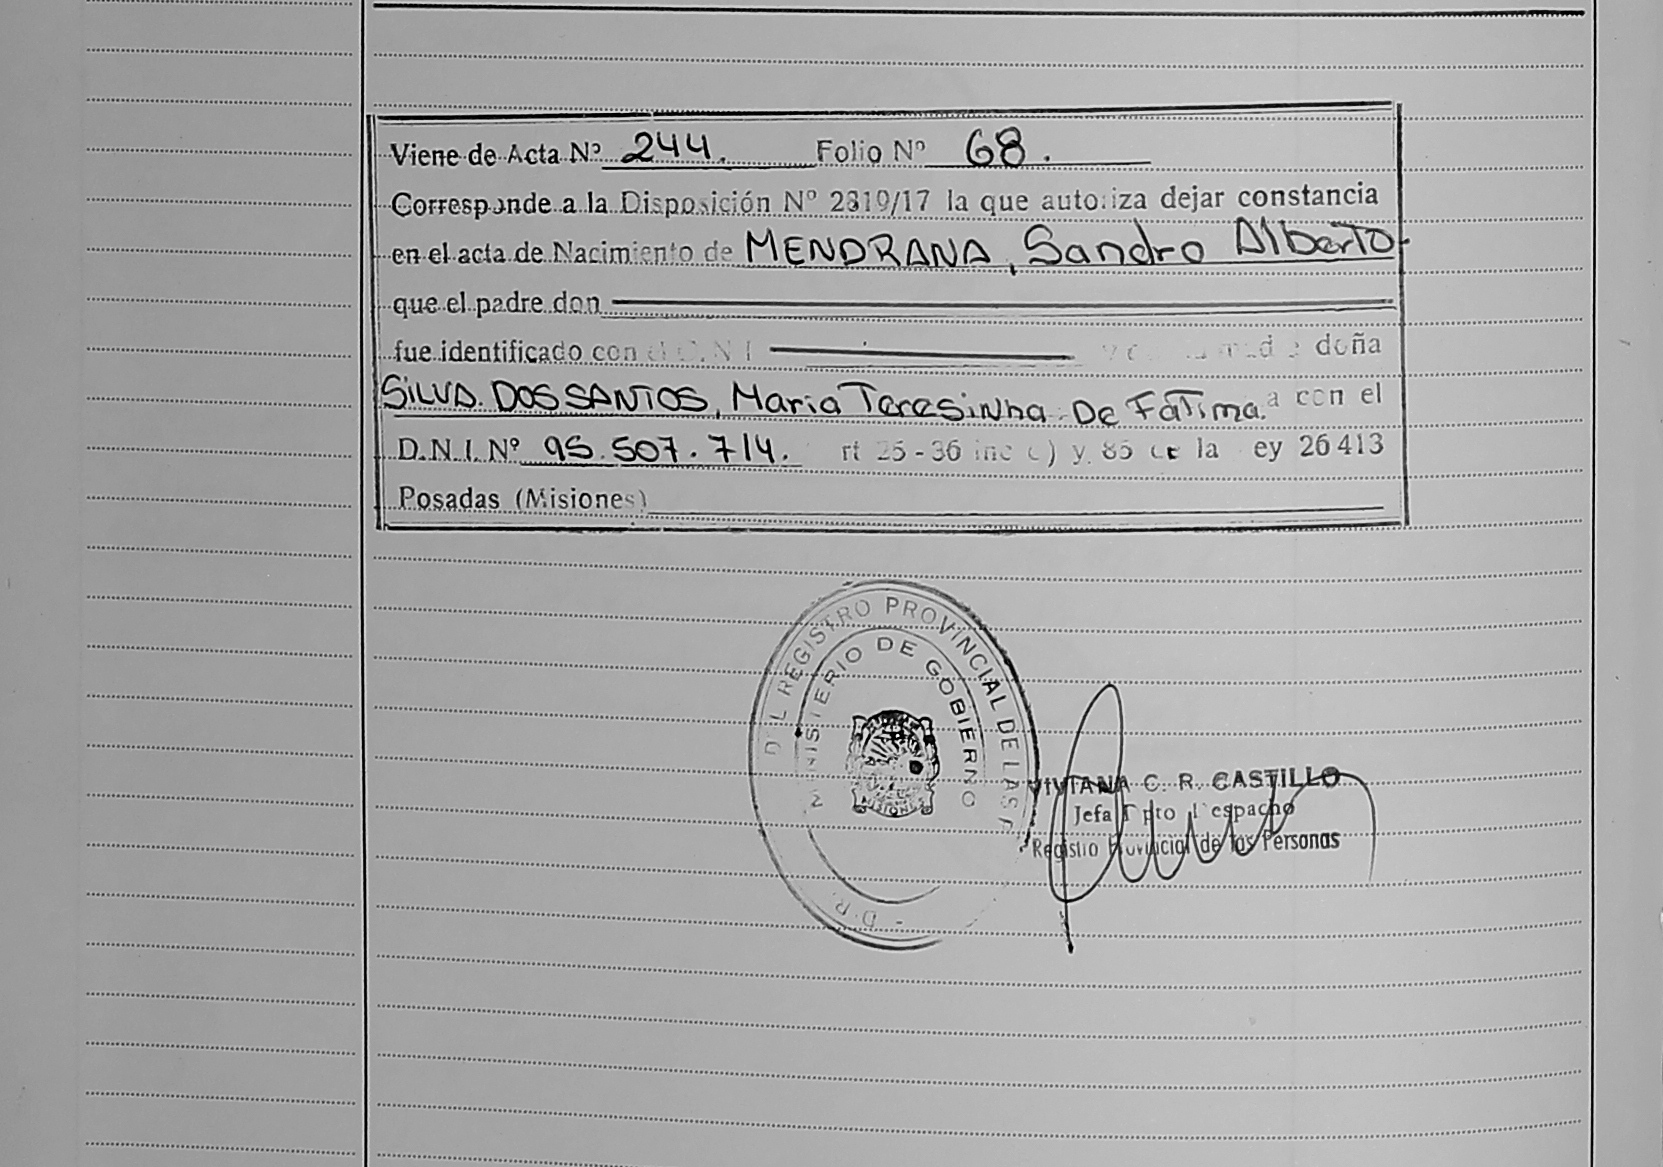 Viene de Acta Nº 244. Folio Nº 68.
Corresponde a la Disposición Nº 2319/17 la que autoriza dejar constancia
en el acta de Nacimiento de MENDRANA, Sandro Alberto
que el padre don
fue identificado con el D.N.I doña
SILVA DOS SANTOS, Maria Teresinha De Fátima. con el
D.N.I. Nº 95.507.714. 25-36 inc c) y 85 de la ey 26413
Posadas (Misiones)
REGISTRO PROVINCIAL DE LAS
MINISTERIO DE GOBIERNO
MISIONES
D.R.
VIVIANA C. R. CASTILLO
Jefa Dpto Despacho
Registro Provincial de las Personas